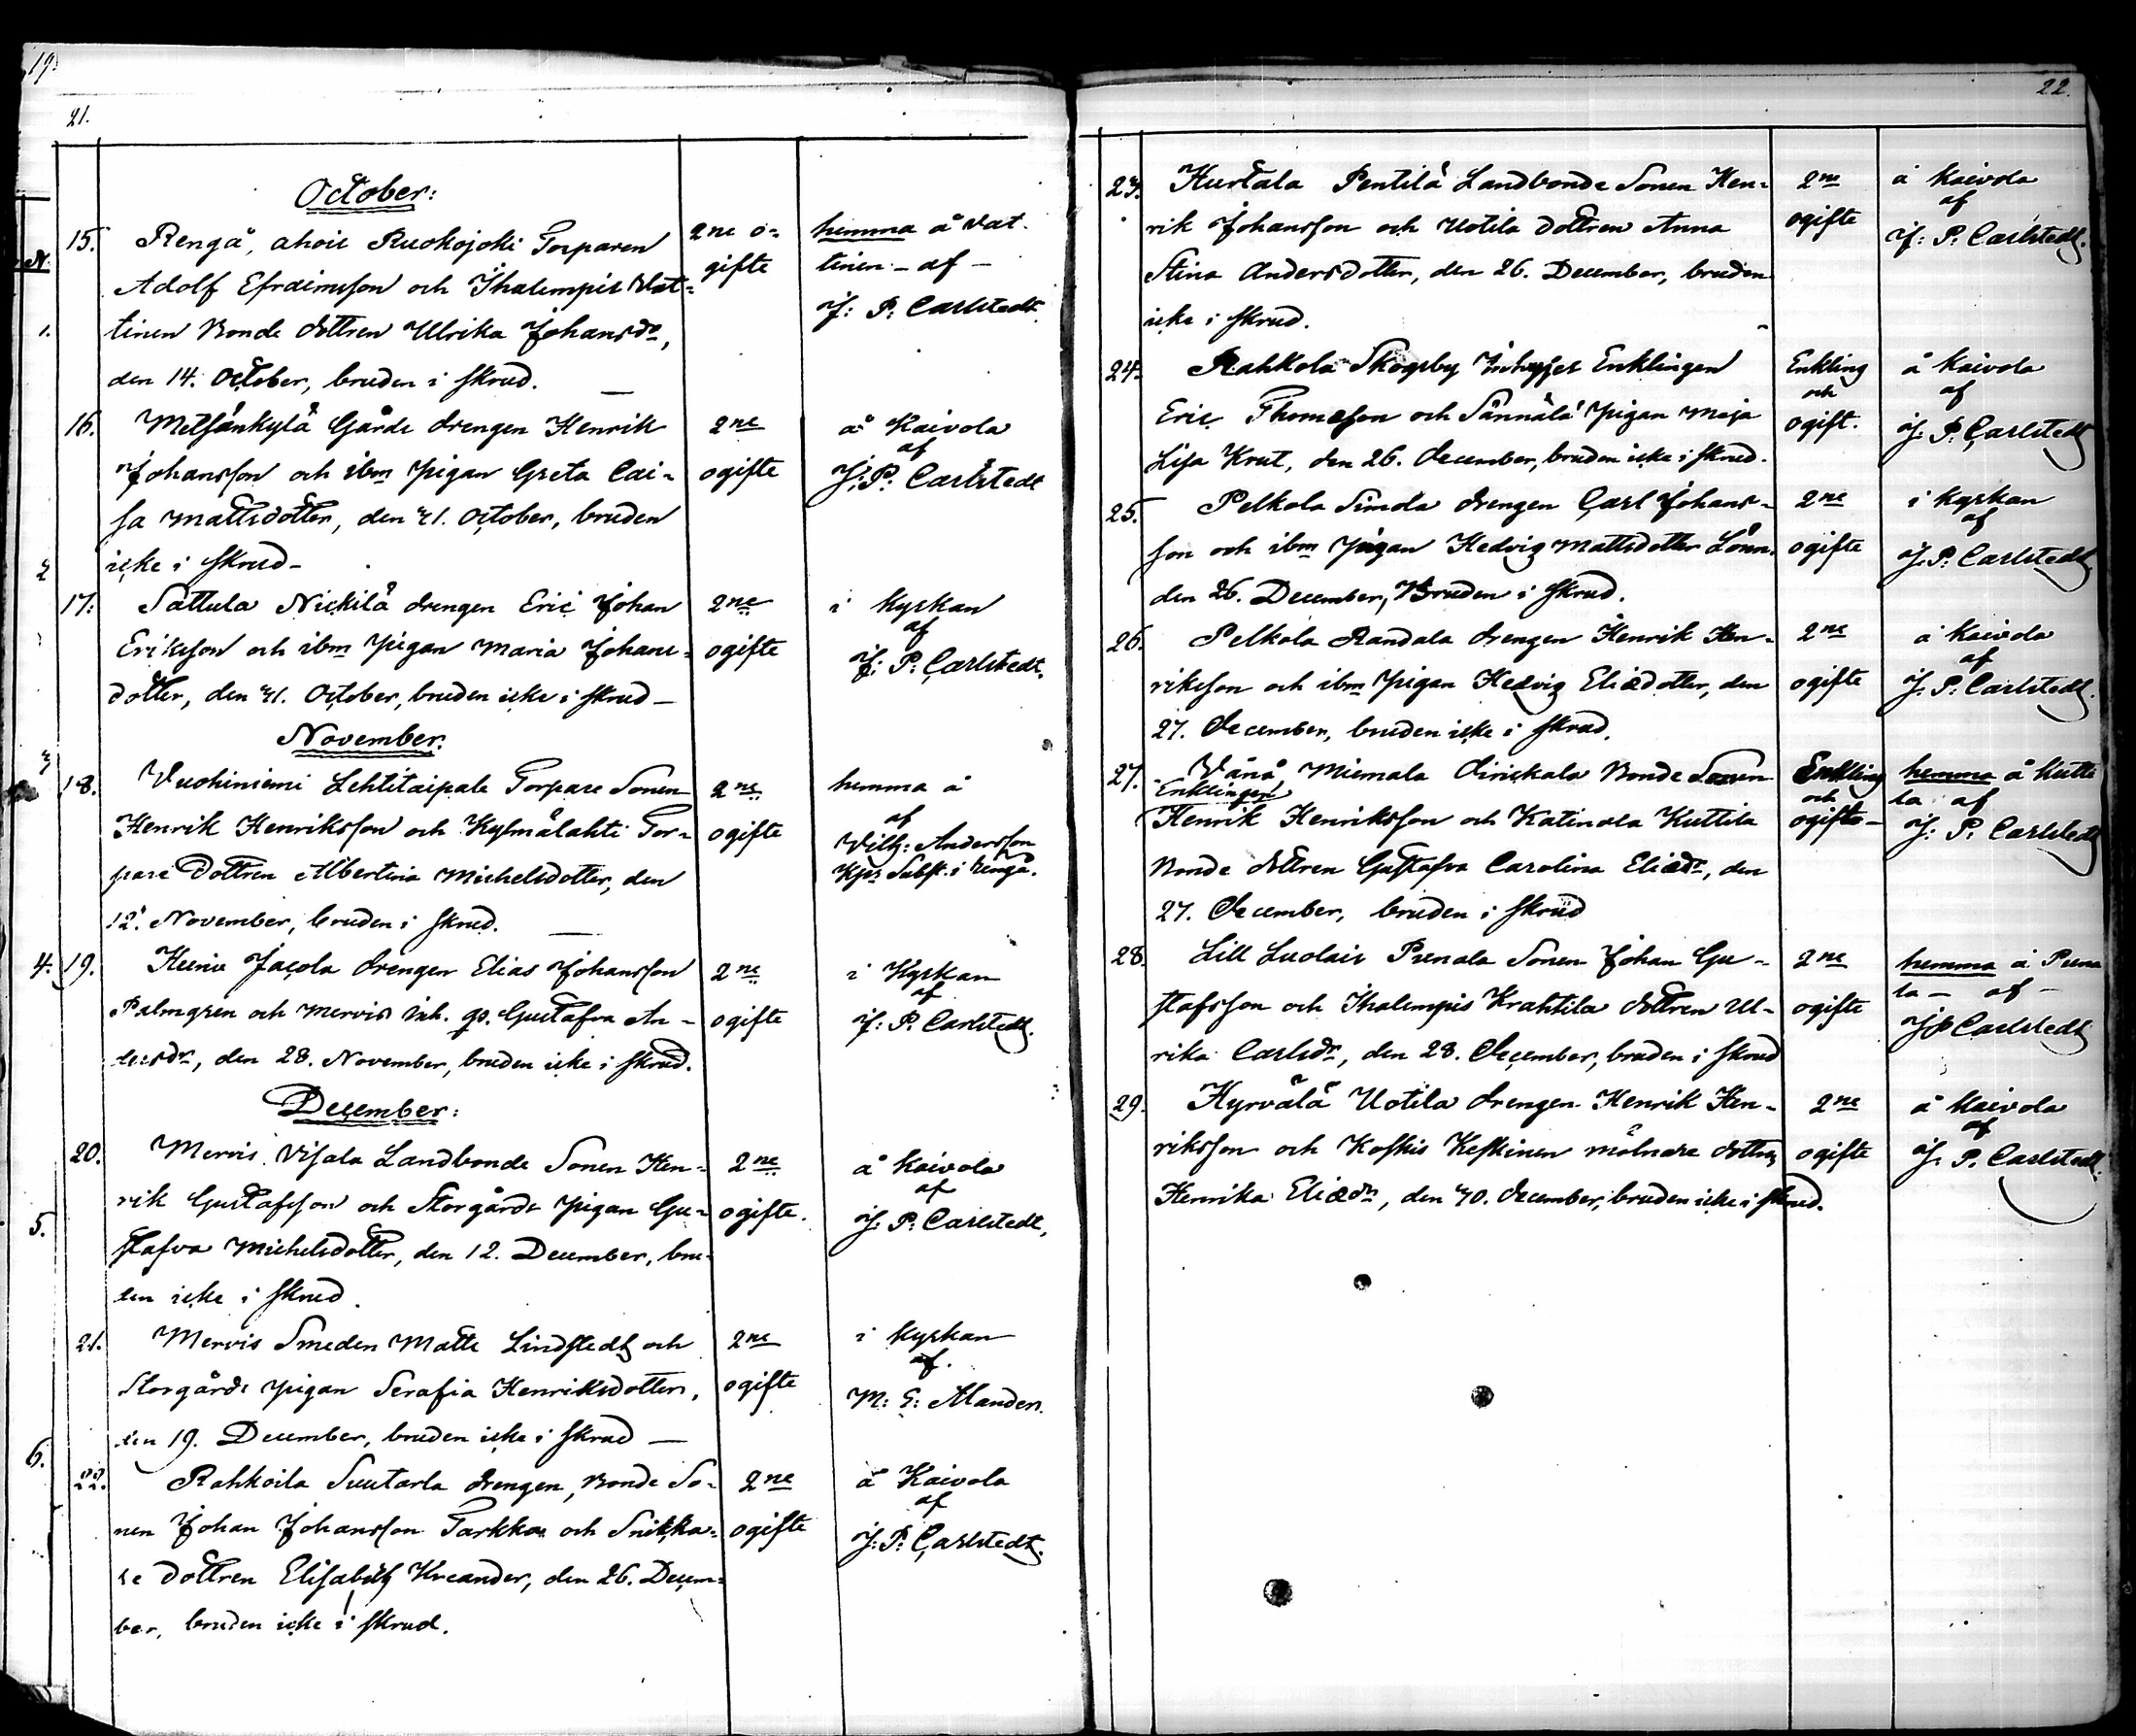 19.
21.
October:
15. Rengå, ahois Ruokojoki Torparen 2ne o= hemma å Vat=
Adolf Efraimsson och Ihalempis Vat= gifte tinen – af –
tinen Bonde dottren Ulrika Johansdr, J: P: Carlstedt.
den 14. October, bruden i skrud. —
16. Metsänkylä Gårds drengen Henrik 2ne å Kaivola
Johansson och ibm pigan Greta Cai= ogifte af J: P: Carlstedt
sa Mattsdotter, den 21. October, bruden
icke i skrud –
17. Sattula Nickilä drengen Eric Johan 2ne i Kyrkan
Ericsson och ibm pigan Maria Johans= ogifte af J: P: Carlstedt.
dotter, den 21. October, bruden icke i skrud –
November.
18. Vuohiniemi Lehtitaipale Torpare Sonen 2ne hemma å
Henrik Henriksson och Kylmälahti Tor= ogifte af Vilh: Andersson
pare Dottren Albertina Michelsdotter, den Kps Subst. i Rengå.
12. November, bruden i skrud. —
19. Hunie Jacola drengen Elias Johansson 2ne i Kyrkan
Palmgren och Mervis inh. qv. Gustafva An= ogifte af J: P. Carlstedt.
dersdr, den 28. November, bruden icke i skrud.
December:
20. Mervis Visala Landbonde Sonen Hen= 2ne å Kaivola
rik Gustafsson och Storgårds pigan Gu= ogifte. af J: P: Carlstedt,
stafva Michelsdotter, den 12. December, bru=
den icke i skrud.
21. Mervis Smeden Matts Lindstedt och 2ne i kyrkan
Storgårds pigan Serafia Henriksdotter, ogifte af. M: E: Alander.
den 19. December, bruden icke i skrud —
22. Rahkoila Suutarla drengen, Bonde So= 2ne å Kaivola
nen Johan Johansson Tarkka och Snikka= ogifte af J: P: Carlstedt.
re dottren Elisabeth Kreander, den 26. Decem=
ber, bruden icke i skrud.
22.
23. Hurtala Pentilä Landbonde Sonen Hen= 2ne å Kaivola
rik Johansson och Uotila dottren Anna ogifte af J: P: Carlstedt.
Stina Andersdotter, den 26. December, bruden
icke i skrud.
24. Rahkola Skogsby Inhyses Enklingen Enkling å Kaivola
Eric Thomasson och Sännälä pigan Maja och ogift. af J: P: Carlstedt
Lisa Krut, den 26. December, bruden icke i skrud.
25. Pelkola Simola drengen Carl Johans= 2ne i kyrkan
son och ibm pigan Hedvig Mattsdotter Lönn. ogifte af J: P: Carlstedt
den 26. December, Bruden i skrud.
26. Pelkola Randala drengen Henrik Hen= 2ne å Kaivola
riksson och ibm pigan Hedvig Eliædotter, den ogifte af J. P: Carlstedt.
27. December, bruden icke i skrud.
27. Vänå Miemala Dirickala Bonde Sonen Enkling hemma å Kutti
Enklingen och la af
Henrik Henriksson och Katinala Kuttila ogifto – J: P: Carlstedt
Bonde dottren Gustafva Carolina Eliædr, den
27. December, bruden i skrud
28. Lill Luolais Prenala Sonen Johan Gu= 2ne hemma å Prena
stafsson och Ihalempis Krahtila dottren Ul= ogifte la – af –
rika Carlsdr, den 28. December, bruden i skrud J P Carlstedt
29. Hyrvälä Uotila drengen Henrik Hen= 2ne å Kaivola
riksson och Koskis Keskinen mölnare dottren ogifte af J. P. Carlstedt.
Henrika Eliædr, den 30. December, bruden icke i skrud.